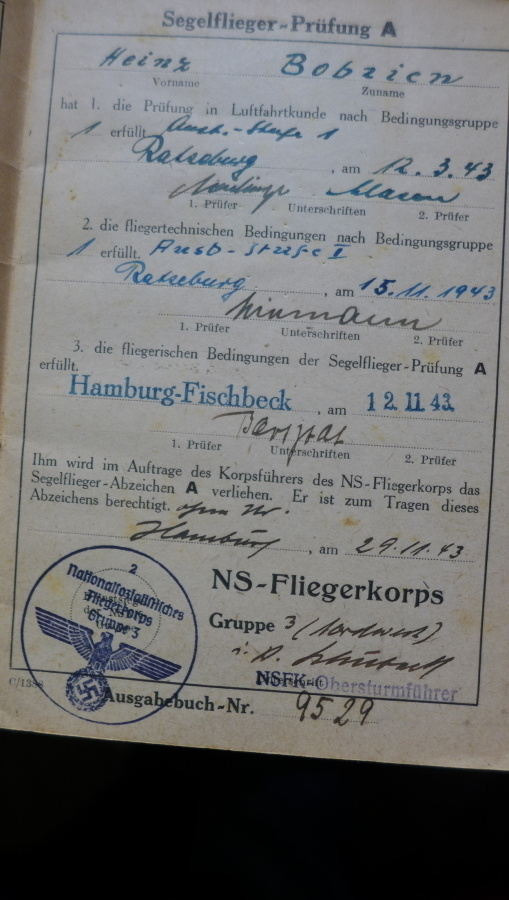 Segelflieger-Prüfung A
Heinz Bobzien
Vorname Zuname
hat 1. die Prüfung in Luftfahrtkunde nach Bedingungsgruppe
1 erfüllt Ausb.-Stufe 1
Ratzeburg, am 12.3.43
1. Prüfer Unterschriften 2. Prüfer
2. die fliegertechnischen Bedingungen nach Bedingungsgruppe
1 erfüllt. Ausb-Stufe I
Ratzeburg, am 15.11.1943
1. Prüfer Unterschriften 2. Prüfer
3. die fliegerischen Bedingungen der Segelflieger-Prüfung A
erfüllt.
Hamburg-Fischbeck, am 12.11.43.
1. Prüfer Unterschriften 2. Prüfer
Ihm wird im Auftrage des Korpsführers des NS-Fliegerkorps das
Segelflieger-Abzeichen A verliehen. Er ist zum Tragen dieses
Abzeichens berechtigt.
Hamburg, am 29.11.43
2
Nationalsozialistisches
Fliegerkorps
Gruppe 3
NS-Fliegerkorps
Gruppe 3 (Nordwest)
NSFK-Obersturmführer
C/1388
Ausgabebuch-Nr. 9529